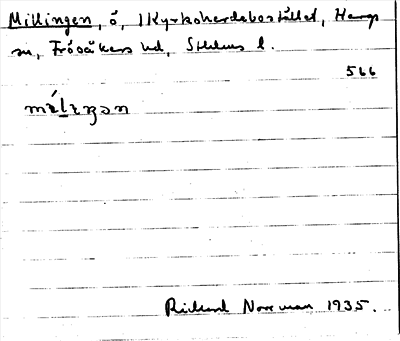 Millingen, ö, 1 Kyrkoherdebostället, Hargs
sn, Frösåkers hd, Sthlms l.
566
Rickard Norrman 1935.